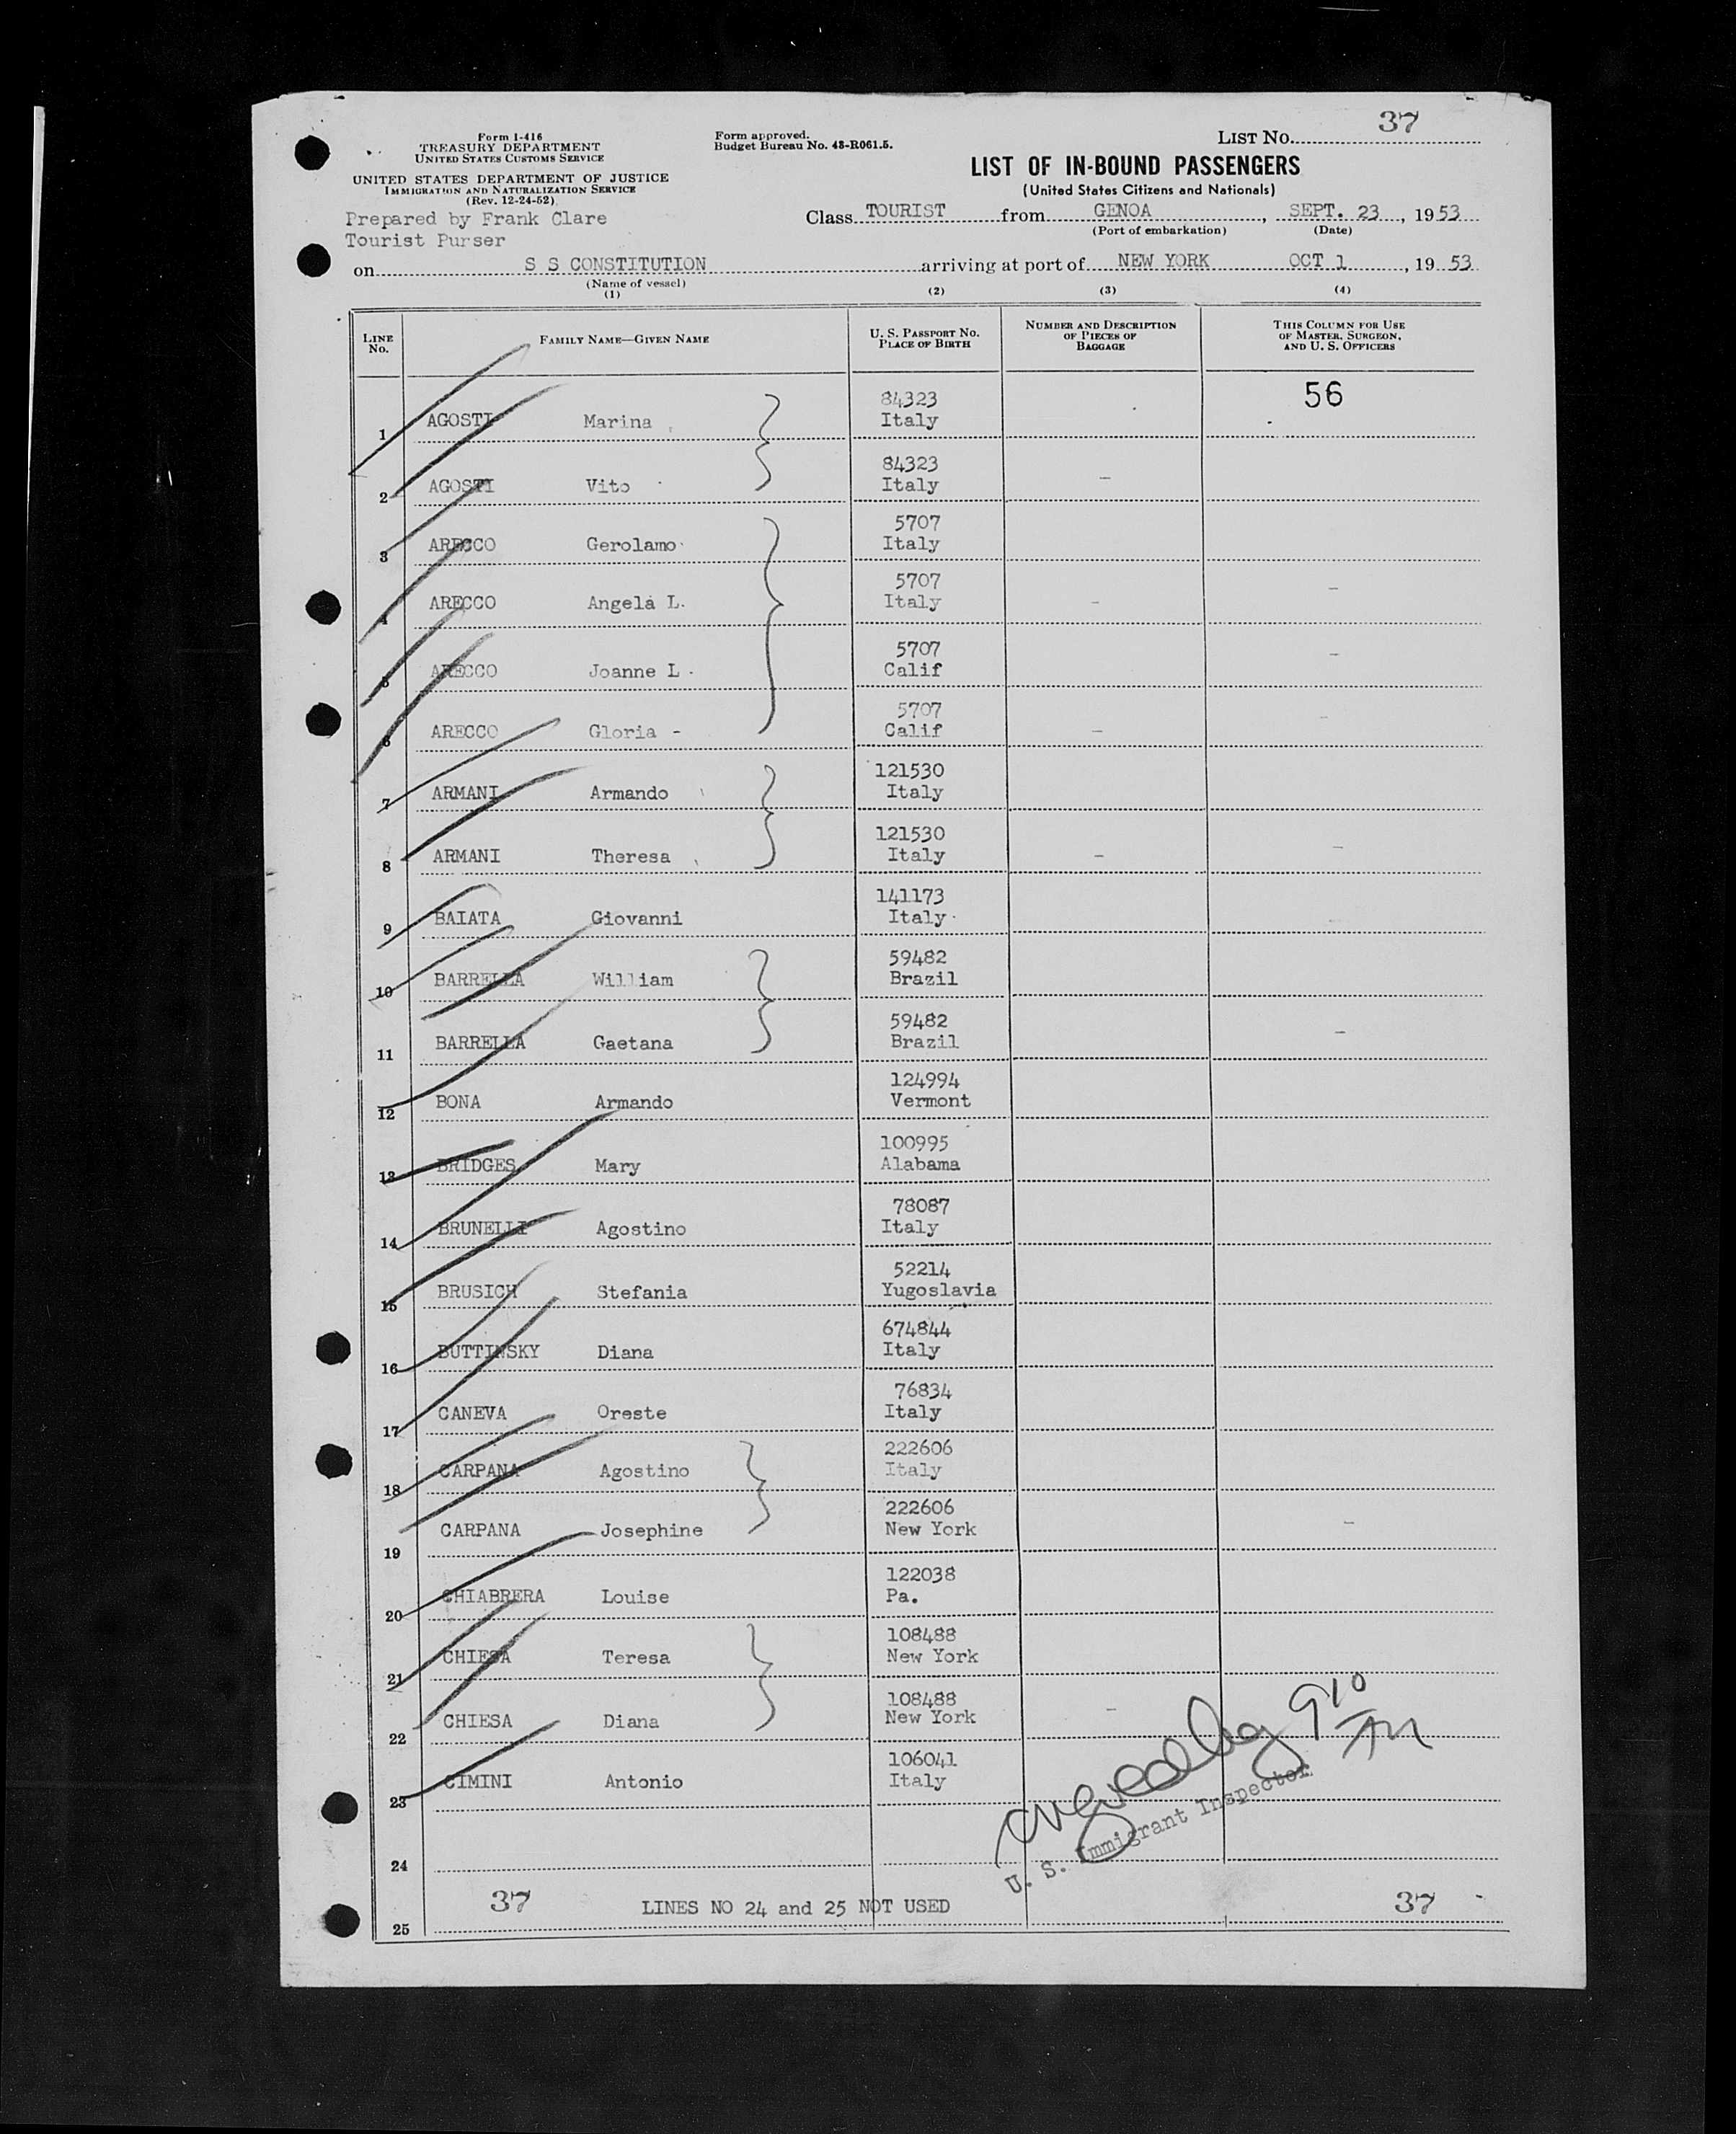 37
Form I-416
TREASURY DEPARTMENT
UNITED STATES CUSTOMS SERVICE
UNITED STATES DEPARTMENT OF JUSTICE
IMMIGRATION AND NATURALIZATION SERVICE
(Rev. 12-24-52)
Form approved.
Budget Bureau No. 43-R061.5.
LIST NO.
LIST OF IN-BOUND PASSENGERS
(United States Citizens and Nationals)
Prepared by Frank Clare
Tourist Purser
Class TOURIST from GENOA, SEPT. 23, 1953
(Port of embarkation) (Date)
on S S CONSTITUTION arriving at port of NEW YORK OCT 1, 1953
(Name of vessel)
(1) (2) (3) (4)
LINE NO. FAMILY NAME—GIVEN NAME U. S. PASSPORT NO. PLACE OF BIRTH NUMBER AND DESCRIPTION OF PIECES OF BAGGAGE THIS COLUMN FOR USE OF MASTER, SURGEON, AND U. S. OFFICERS
56
84323
1 AGOSTI Marina Italy
84323
2 AGOSTI Vito Italy
5707
3 ARECCO Gerolamo Italy
5707
4 ARECCO Angela L. Italy
5707
5 ARECCO Joanne L. Calif
5707
6 ARECCO Gloria - Calif
121530
7 ARMANI Armando Italy
121530
8 ARMANI Theresa Italy
141173
9 BAIATA Giovanni Italy
59482
10 BARRELLA William Brazil
59482
11 BARRELLA Gaetana Brazil
124994
12 BONA Armando Vermont
100995
13 BRIDGES Mary Alabama
78087
14 BRUNELLI Agostino Italy
52214
15 BRUSICH Stefania Yugoslavia
674844
16 BUTTINSKY Diana Italy
76834
17 CANEVA Oreste Italy
222606
18 CARPANA Agostino Italy
222606
19 CARPANA Josephine New York
122038
20 CHIABRERA Louise Pa.
108488
21 CHIESA Teresa New York
108488
22 CHIESA Diana New York
106041
23 CIMINI Antonio Italy
U. S. Immigrant Inspector
24
37 LINES NO 24 and 25 NOT USED 37
25